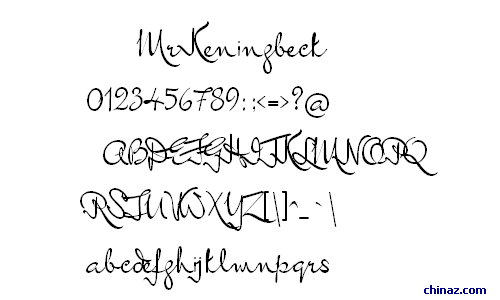 MrKeningbeck
0123456789:;<=>?@
ABCDEFGHIJKLMNOPQ
RSTUVWXYZ[\]^_`\
abcdefghijklmnpqrs
chinaz.com